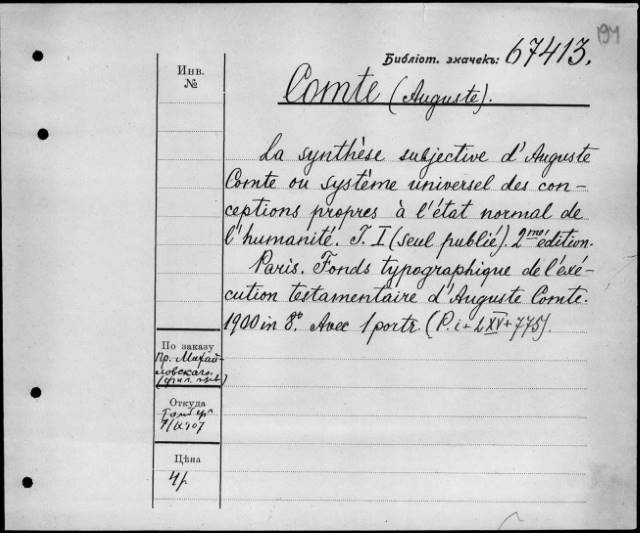 Библіот. значекъ: 67413.
191
Инв.
№
Comte (Auguste).
La synthèse subjective d'Auguste
Comte ou système universel des con-
ceptions propres à l'état normal de
l'humanité. T. I (seul publié). 2me édition.
Paris. Fonds typographique de l'éxé-
cution testamentaire d'Auguste Comte.
1900 in 8°. Avec 1 portr. (P. i + LXV + 775).
По заказу
пр. Михай-
ловскаго
Откуда
Цѣна
4р